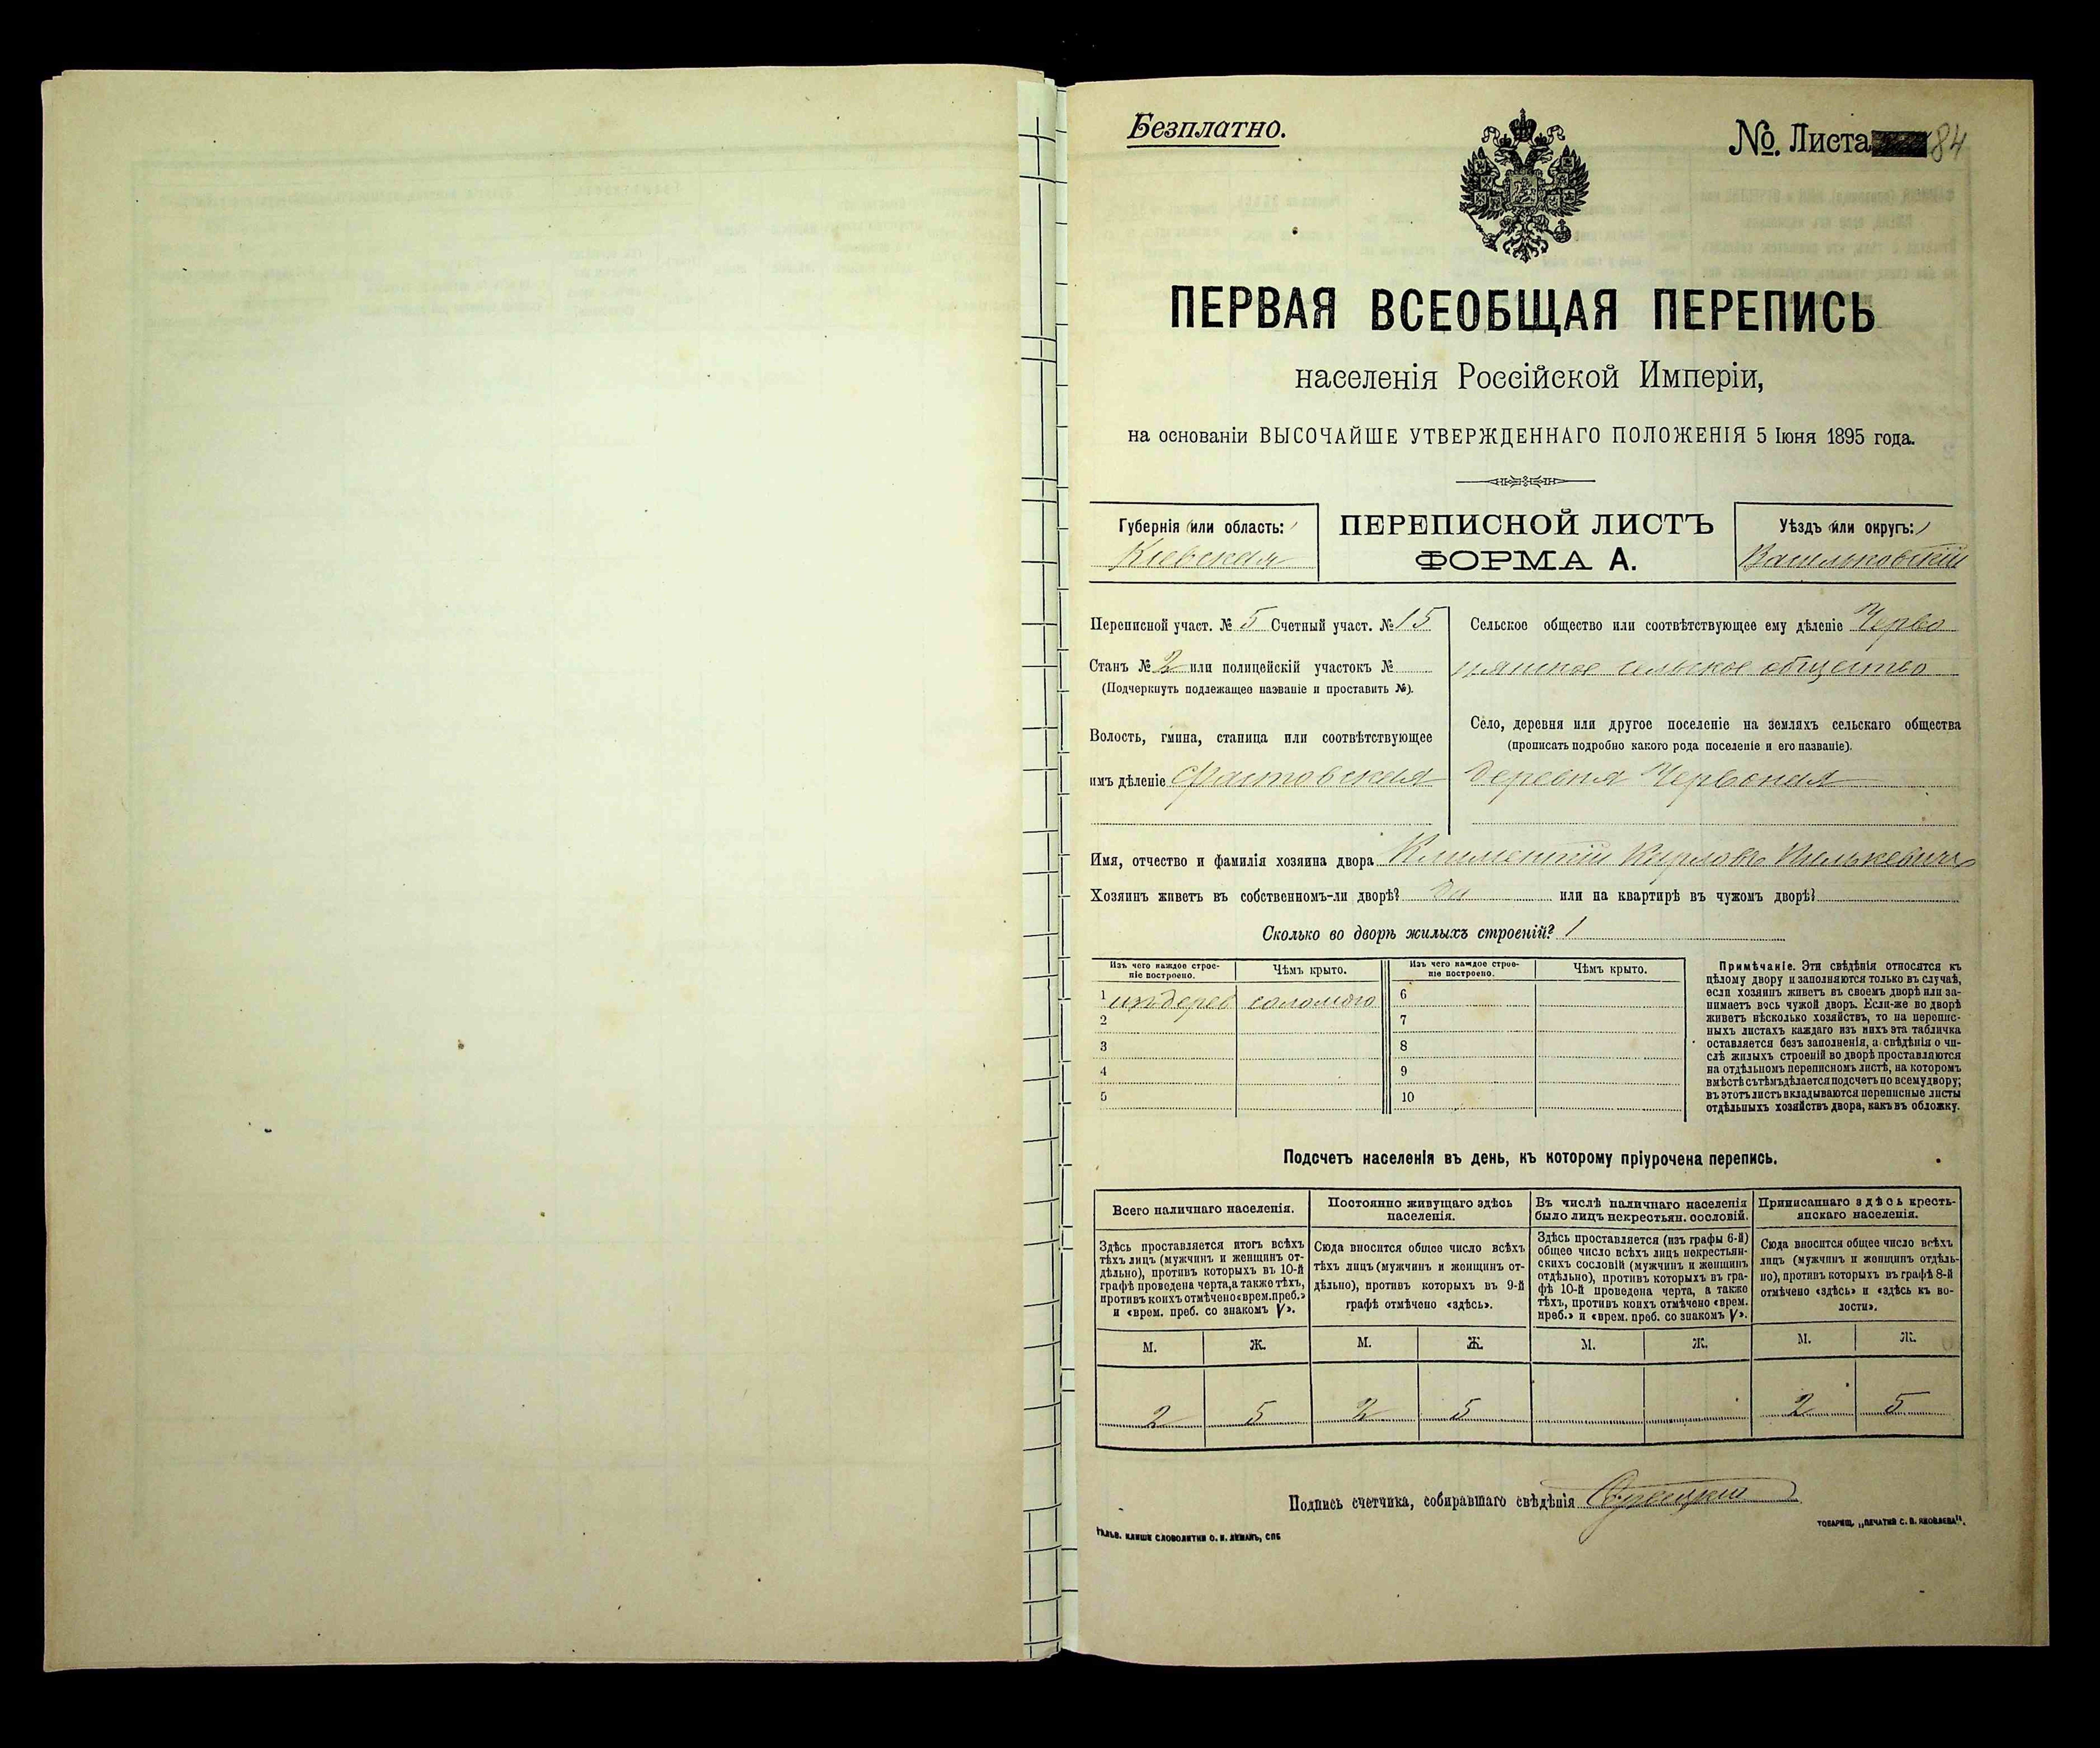 Безплатно.
№. Листа 84
ПЕРВАЯ ВСЕОБЩАЯ ПЕРЕПИСЬ
населенія Россійской Имперіи,
на основаніи ВЫСОЧАЙШЕ УТВЕРЖДЕННАГО ПОЛОЖЕНІЯ 5 Іюня 1895 года.
Губернія (или область:)
Кіевская
ПЕРЕПИСНОЙ ЛИСТЪ
ФОРМА А.
Уѣздъ (или округъ:)
Васильковскій
Переписной участ. № 5 Счетный участ. № 15
Станъ № 2 или полицейскій участокъ №
(Подчеркнуть подлежащее названіе и проставить №).
Волость, гмина, станица или соотвѣтствующее
имъ дѣленіе Фастовская
Сельское общество или соотвѣтствующее ему дѣленіе Черво
нянское сельское общество
Село, деревня или другое поселеніе на земляхъ сельскаго общества
(прописать подробно какого рода поселеніе и его названіе).
деревня Червоная
Имя, отчество и фамилія хозяина двора Климентій
Хозяинъ живетъ въ собственномъ-ли дворѣ? да или на квартирѣ въ чужомъ дворѣ?
Сколько во дворѣ жилыхъ строеній? 1
Изъ чего каждое строе-
ніе построено.
Чѣмъ крыто.
Изъ чего каждое строе-
ніе построено.
Чѣмъ крыто.
1 изъ дерев соломою 6
2 7
3 8
4 9
5 10
Примѣчаніе. Эти свѣдѣнія относятся къ
цѣлому двору и заполняются только въ случаѣ,
если хозяинъ живетъ въ своемъ дворѣ или за-
нимаетъ весь чужой дворъ. Если-же во дворѣ
живетъ нѣсколько хозяйствъ, то на перепис-
ныхъ листахъ каждаго изъ нихъ эта табличка
оставляется безъ заполненія, а свѣдѣнія о чи-
слѣ жилыхъ строеній во дворѣ проставляются
на отдѣльномъ переписномъ листѣ, на которомъ
вмѣстѣ съ тѣмъ дѣлается подсчетъ по всему двору;
въ этотъ листъ вкладываются переписные листы
отдѣльныхъ хозяйствъ двора, какъ въ обложку.
Подсчетъ населенія въ день, къ которому пріурочена перепись.
Всего наличнаго населенія.
Здѣсь проставляется итогъ всѣхъ
тѣхъ лицъ (мужчинъ и женщинъ от-
дѣльно), противъ которыхъ въ 10-й
графѣ проведена черта, а также тѣхъ,
противъ коихъ отмѣчено «врем. преб.»
и «врем. преб. со знакомъ V».
Постоянно живущаго здѣсь
населенія.
Сюда вносится общее число всѣхъ
тѣхъ лицъ (мужчинъ и женщинъ от-
дѣльно), противъ которыхъ въ 9-й
графѣ отмѣчено «здѣсь».
Въ числѣ наличнаго населенія
было лицъ некрестьян. сословій.
Здѣсь проставляется (изъ графы 6-й)
общее число всѣхъ лицъ некрестьян-
скихъ сословій (мужчинъ и женщинъ
отдѣльно), противъ которыхъ въ гра-
фѣ 10-й проведена черта, а также
тѣхъ, противъ коихъ отмѣчено «врем.
преб.» и «врем. преб. со знакомъ V».
Приписаннаго здѣсь кресть-
янскаго населенія.
Сюда вносится общее число всѣхъ
лицъ (мужчинъ и женщинъ отдѣль-
но), противъ которыхъ въ графѣ 8-й
отмѣчено «здѣсь» и «здѣсь къ во-
лости».
М. Ж. М. Ж. М. Ж. М. Ж.
2 5 2 5 2 5
Подпись счетчика, собиравшаго свѣдѣнія
ГАЛЬВ. КЛИШЕ СЛОВОЛИТНИ О. И. ЛЕМАНЪ, СПБ
ТОВАРИЩ. „ПЕЧАТНЯ С. П. ЯКОВЛЕВА“.